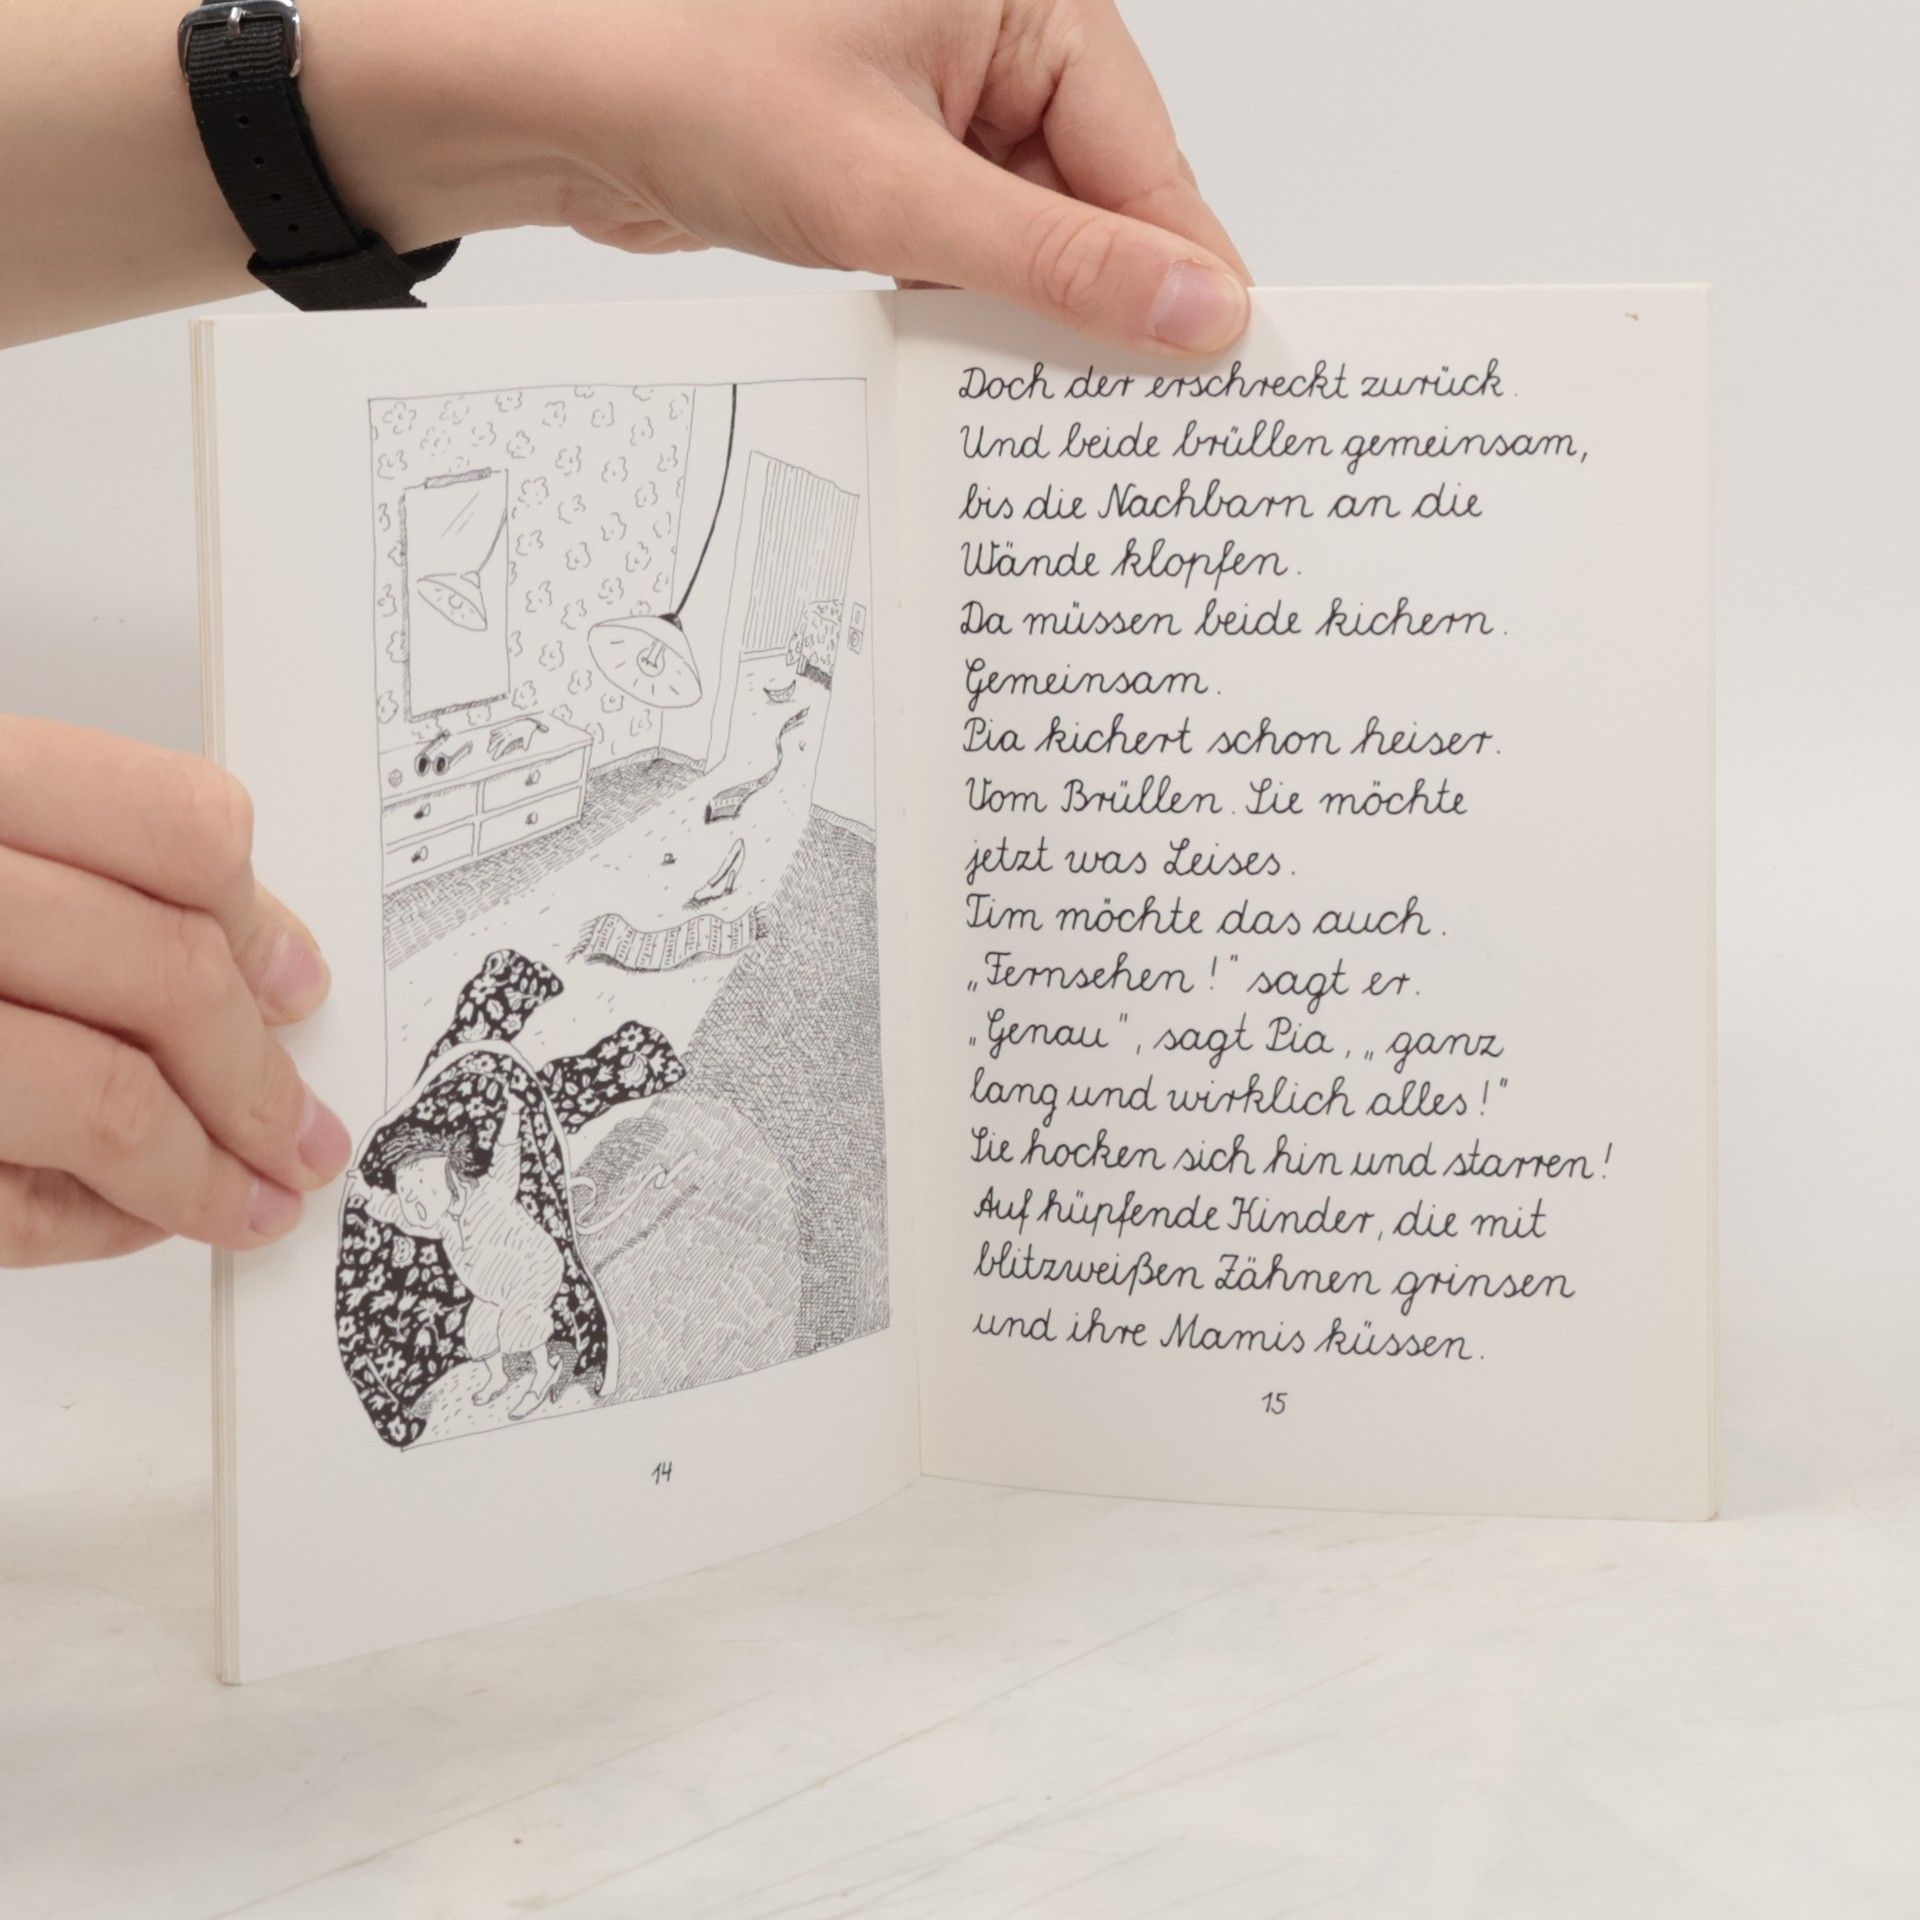 Doch der erschreckt zurück.
Und beide brüllen gemeinsam,
bis die Nachbarn an die
Wände klopfen.
Da müssen beide kichern.
Gemeinsam.
Pia kichert schon heiser.
Vom Brüllen. Sie möchte
jetzt was Leises.
Tim möchte das auch.
„Fernsehen!“ sagt er.
„Genau“, sagt Pia, „ganz
lang und wirklich alles!“
Sie hocken sich hin und starren!
Auf hüpfende Kinder, die mit
blitzweißen Zähnen grinsen
und ihre Mamis küssen.
14
15